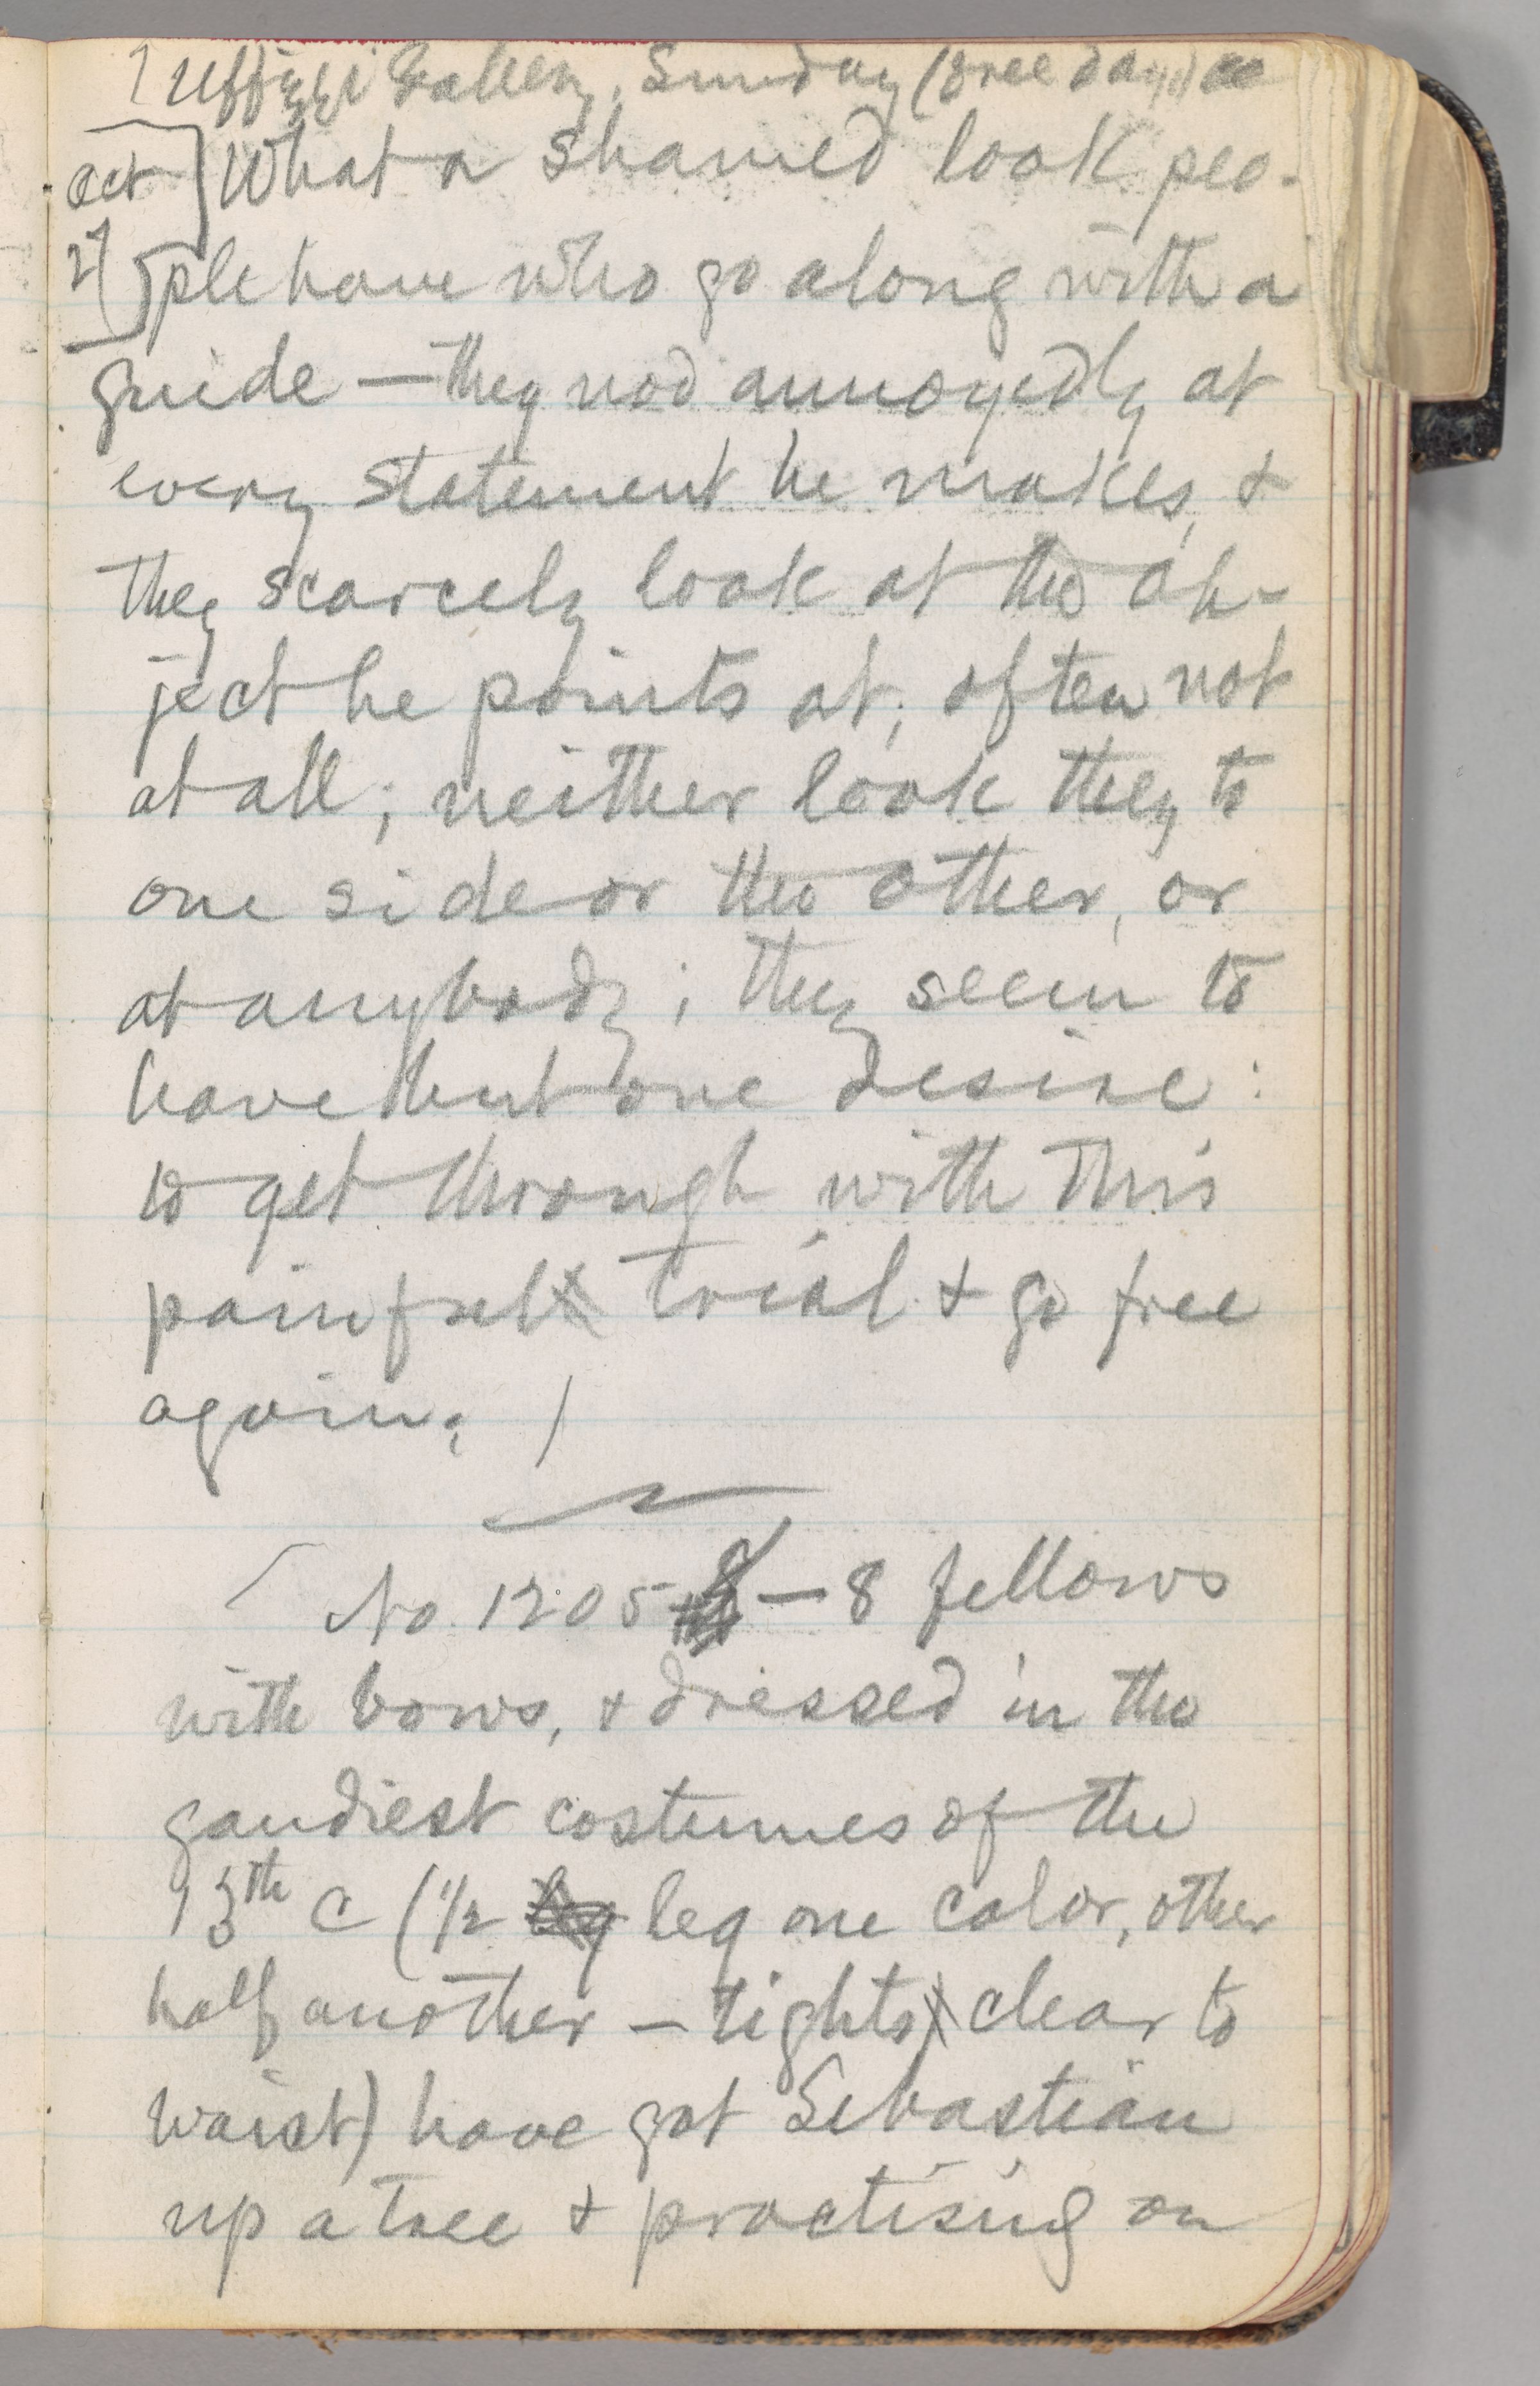 Uffizzi Gallery, Sunday (free day)
Oct What a shamed look peo-
27 ple have who go along with a
guide — they nod annoyedly at
every statement he makes, &
they scarcely look at the ob-
ject he points at, often not
at all; neither look they to
one side or the other, or
at anybody; they seem to
have but one desire:
to get through with this
painful trial & go free
again.
No. 1205 — 8 fellows
with bows, & dressed in the
gaudiest costumes of the
13th c (1/2 leg one color, other
half another — tights clear to
waist) have got Sebastian
up a tree & practising on